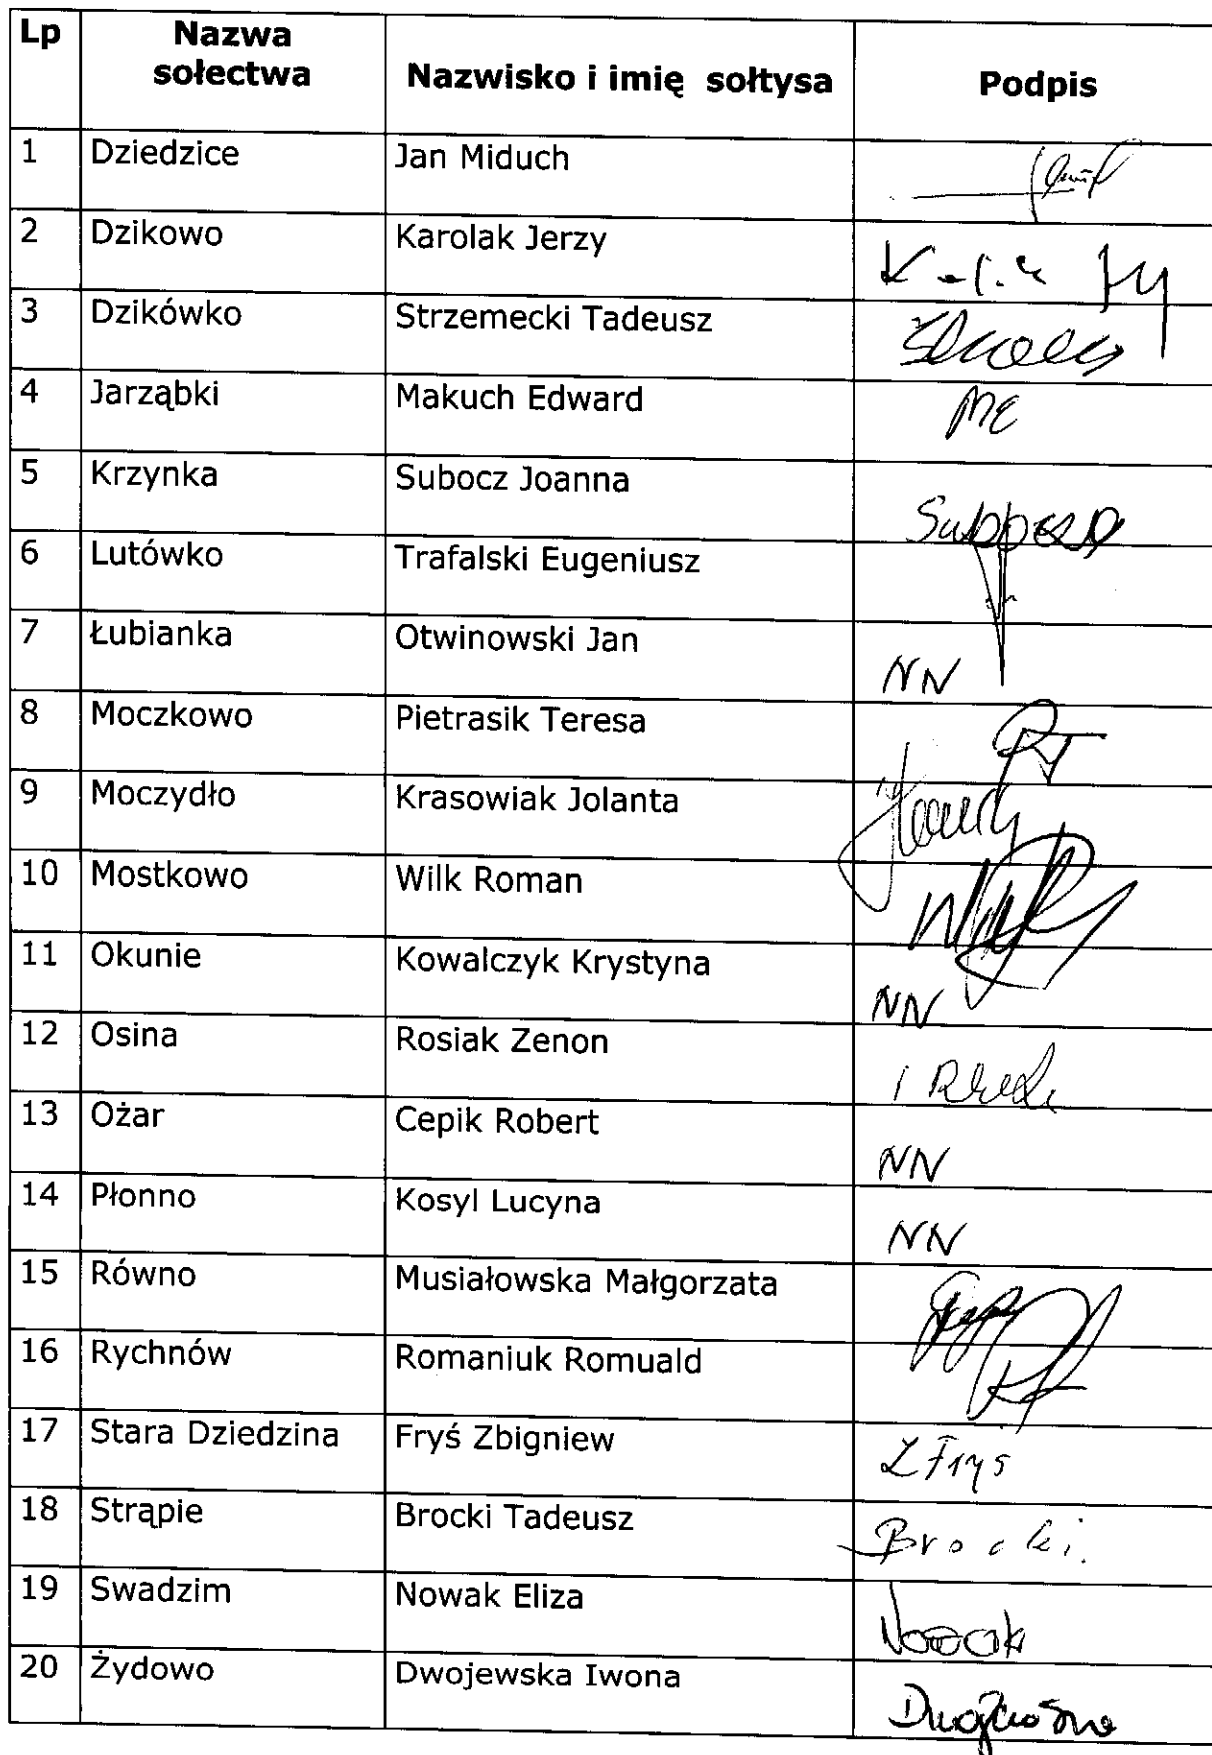 Lp Nazwa sołectwa Nazwisko i imię sołtysa Podpis
1 Dziedzice Jan Miduch
2 Dzikowo Karolak Jerzy
3 Dzikówko Strzemecki Tadeusz
4 Jarząbki Makuch Edward ME
5 Krzynka Subocz Joanna
6 Lutówko Trafalski Eugeniusz
7 Łubianka Otwinowski Jan NN
8 Moczkowo Pietrasik Teresa
9 Moczydło Krasowiak Jolanta
10 Mostkowo Wilk Roman
11 Okunie Kowalczyk Krystyna NN
12 Osina Rosiak Zenon
13 Ożar Cepik Robert NN
14 Płonno Kosyl Lucyna NN
15 Równo Musiałowska Małgorzata
16 Rychnów Romaniuk Romuald
17 Stara Dziedzina Fryś Zbigniew Z Fryś
18 Strąpie Brocki Tadeusz Brocki.
19 Swadzim Nowak Eliza Nowak
20 Żydowo Dwojewska Iwona